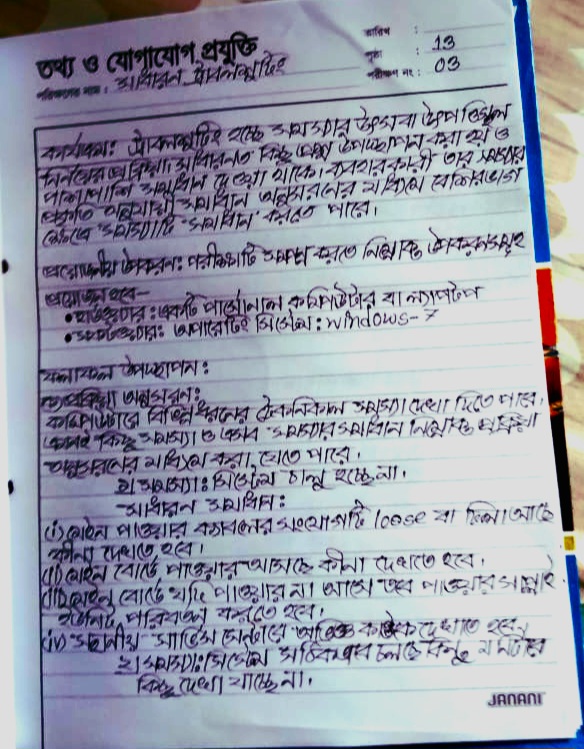 তথ্য ও যোগাযোগ প্রযুক্তি
তারিখ :
পৃষ্ঠা : 13
পরীক্ষণ নং : 03
পরীক্ষণের নাম : সাধারন ট্রাবলশুটিং
কার্যক্রম: ট্রাবলশুটিং হচ্ছে সমস্যার উৎস বা উৎপত্তিস্থল
নির্ণয়ের প্রক্রিয়া। সাধারনত কিছু প্রশ্ন উপস্থাপন করা হয় ও
পাশাপাশি সমাধান দেওয়া থাকে। ব্যবহারকারী তার সমস্যার
প্রকৃতি অনুযায়ী সমাধান অনুসরনের মাধ্যমে বেশিরভাগ
ক্ষেত্রে সমস্যাটি সমাধান করতে পারে।
প্রয়োজনীয় উপকরন: পরীক্ষাটি সম্পন্ন করতে নিম্নোক্ত উপকরনসমূহ
প্রয়োজন হবে—
• হার্ডওয়্যার: একটি পার্সোনাল কম্পিউটার বা ল্যাপটপ
• সফটওয়্যার: অপারেটিং সিস্টেম: windows-7
ফলাফল উপস্থাপন:
প্রক্রিয়া অনুসরন:
কম্পিউটারে বিভিন্ন ধরনের টেকনিক্যাল সমস্যা দেখা দিতে পারে।
এমনই কিছু সমস্যা ও এসব সমস্যার সমাধান নিম্নোক্ত প্রক্রিয়া
অনুসরনের মাধ্যমে করা যেতে পারে।
১। সমস্যা: সিস্টেম চালু হচ্ছে না।
সাধারন সমাধান:
(i) মেইন পাওয়ার ক্যাবলের সংযোগটি loose বা ঢিলা আছে
কীনা দেখতে হবে।
(ii) মেইন বোর্ডে পাওয়ার আসছে কীনা দেখতে হবে।
(iii) মেইন বোর্ডে যদি পাওয়ার না আসে তবে পাওয়ার সাপ্লাই
ইউনিট পরিবর্তন করতে হবে।
(iv) স্থানীয় সার্ভিস সেন্টারে অভিজ্ঞ কাউকে দেখাতে হবে।
২। সমস্যা: সিস্টেম সঠিকভাবে চলছে কিন্তু মনিটরে
কিছু দেখা যাচ্ছে না।
JANANI